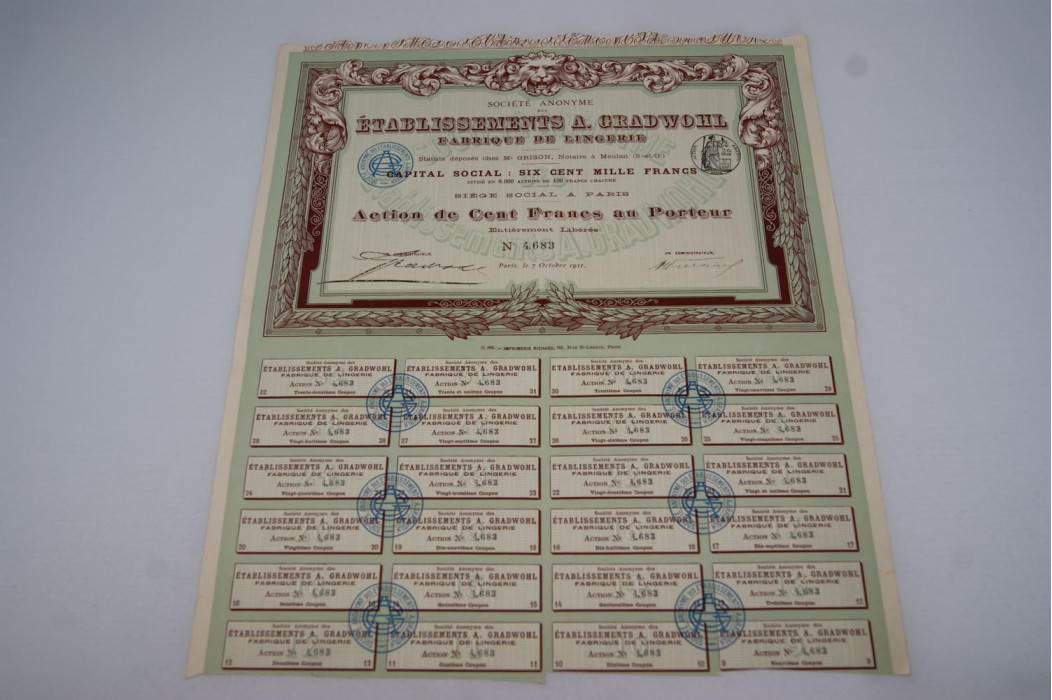 SOCIÉTÉ ANONYME
DES
ÉTABLISSEMENTS A. GRADWOHL
FABRIQUE DE LINGERIE
Statuts déposés chez Me GRISON, Notaire à Meulan (S-et-O)
CAPITAL SOCIAL : SIX CENT MILLE FRANCS
DIVISÉ EN 6.000 ACTIONS DE 100 FRANCS CHACUNE
SIÈGE SOCIAL A PARIS
Action de Cent Francs au Porteur
Entièrement Libérée
No 4,683
UN ADMINISTRATEUR,
Paris, le 7 Octobre 1911,
IMPRIMERIE RICHARD, Paris
Société Anonyme des
ÉTABLISSEMENTS A. GRADWOHL
FABRIQUE DE LINGERIE
Action No 4,683
32 Trente-deuxième Coupon
Société Anonyme des
ÉTABLISSEMENTS A. GRADWOHL
FABRIQUE DE LINGERIE
Action No 4,683
Trente et unième Coupon 31
Société Anonyme des
ÉTABLISSEMENTS A. GRADWOHL
FABRIQUE DE LINGERIE
Action No 4,683
30 Trentième Coupon
Société Anonyme des
ÉTABLISSEMENTS A. GRADWOHL
FABRIQUE DE LINGERIE
Action No 4,683
Vingt-neuvième Coupon 29
Société Anonyme des
ÉTABLISSEMENTS A. GRADWOHL
FABRIQUE DE LINGERIE
Action No 4,683
28 Vingt-huitième Coupon 28
Société Anonyme des
ÉTABLISSEMENTS A. GRADWOHL
FABRIQUE DE LINGERIE
Action No 4,683
27 Vingt-septième Coupon 27
Société Anonyme des
ÉTABLISSEMENTS A. GRADWOHL
FABRIQUE DE LINGERIE
Action No 4,683
26 Vingt-sixième Coupon 26
Société Anonyme des
ÉTABLISSEMENTS A. GRADWOHL
FABRIQUE DE LINGERIE
Action No 4,683
25 Vingt-cinquième Coupon 25
Société Anonyme des
ÉTABLISSEMENTS A. GRADWOHL
FABRIQUE DE LINGERIE
Action No 4,683
24 Vingt-quatrième Coupon
Société Anonyme des
ÉTABLISSEMENTS A. GRADWOHL
FABRIQUE DE LINGERIE
Action No 4,683
Vingt-troisième Coupon 23
Société Anonyme des
ÉTABLISSEMENTS A. GRADWOHL
FABRIQUE DE LINGERIE
Action No 4,683
22 Vingt-deuxième Coupon
Société Anonyme des
ÉTABLISSEMENTS A. GRADWOHL
FABRIQUE DE LINGERIE
Action No 4,683
Vingt et unième Coupon 21
Société Anonyme des
ÉTABLISSEMENTS A. GRADWOHL
FABRIQUE DE LINGERIE
Action No 4,683
20 Vingtième Coupon 20
Société Anonyme des
ÉTABLISSEMENTS A. GRADWOHL
FABRIQUE DE LINGERIE
Action No 4,683
19 Dix-neuvième Coupon 19
Société Anonyme des
ÉTABLISSEMENTS A. GRADWOHL
FABRIQUE DE LINGERIE
Action No 4,683
18 Dix-huitième Coupon 18
Société Anonyme des
ÉTABLISSEMENTS A. GRADWOHL
FABRIQUE DE LINGERIE
Action No 4,683
17 Dix-septième Coupon 17
Société Anonyme des
ÉTABLISSEMENTS A. GRADWOHL
FABRIQUE DE LINGERIE
Action No 4,683
16 Seizième Coupon
Société Anonyme des
ÉTABLISSEMENTS A. GRADWOHL
FABRIQUE DE LINGERIE
Action No 4,683
Quinzième Coupon 15
Société Anonyme des
ÉTABLISSEMENTS A. GRADWOHL
FABRIQUE DE LINGERIE
Action No 4,683
14 Quatorzième Coupon
Société Anonyme des
ÉTABLISSEMENTS A. GRADWOHL
FABRIQUE DE LINGERIE
Action No 4,683
Treizième Coupon 13
Société Anonyme des
ÉTABLISSEMENTS A. GRADWOHL
FABRIQUE DE LINGERIE
Action No 4,683
12 Douzième Coupon 12
Société Anonyme des
ÉTABLISSEMENTS A. GRADWOHL
FABRIQUE DE LINGERIE
Action No 4,683
11 Onzième Coupon 11
Société Anonyme des
ÉTABLISSEMENTS A. GRADWOHL
FABRIQUE DE LINGERIE
Action No 4,683
10 Dixième Coupon 10
Société Anonyme des
ÉTABLISSEMENTS A. GRADWOHL
FABRIQUE DE LINGERIE
Action No 4,683
Neuvième Coupon 9